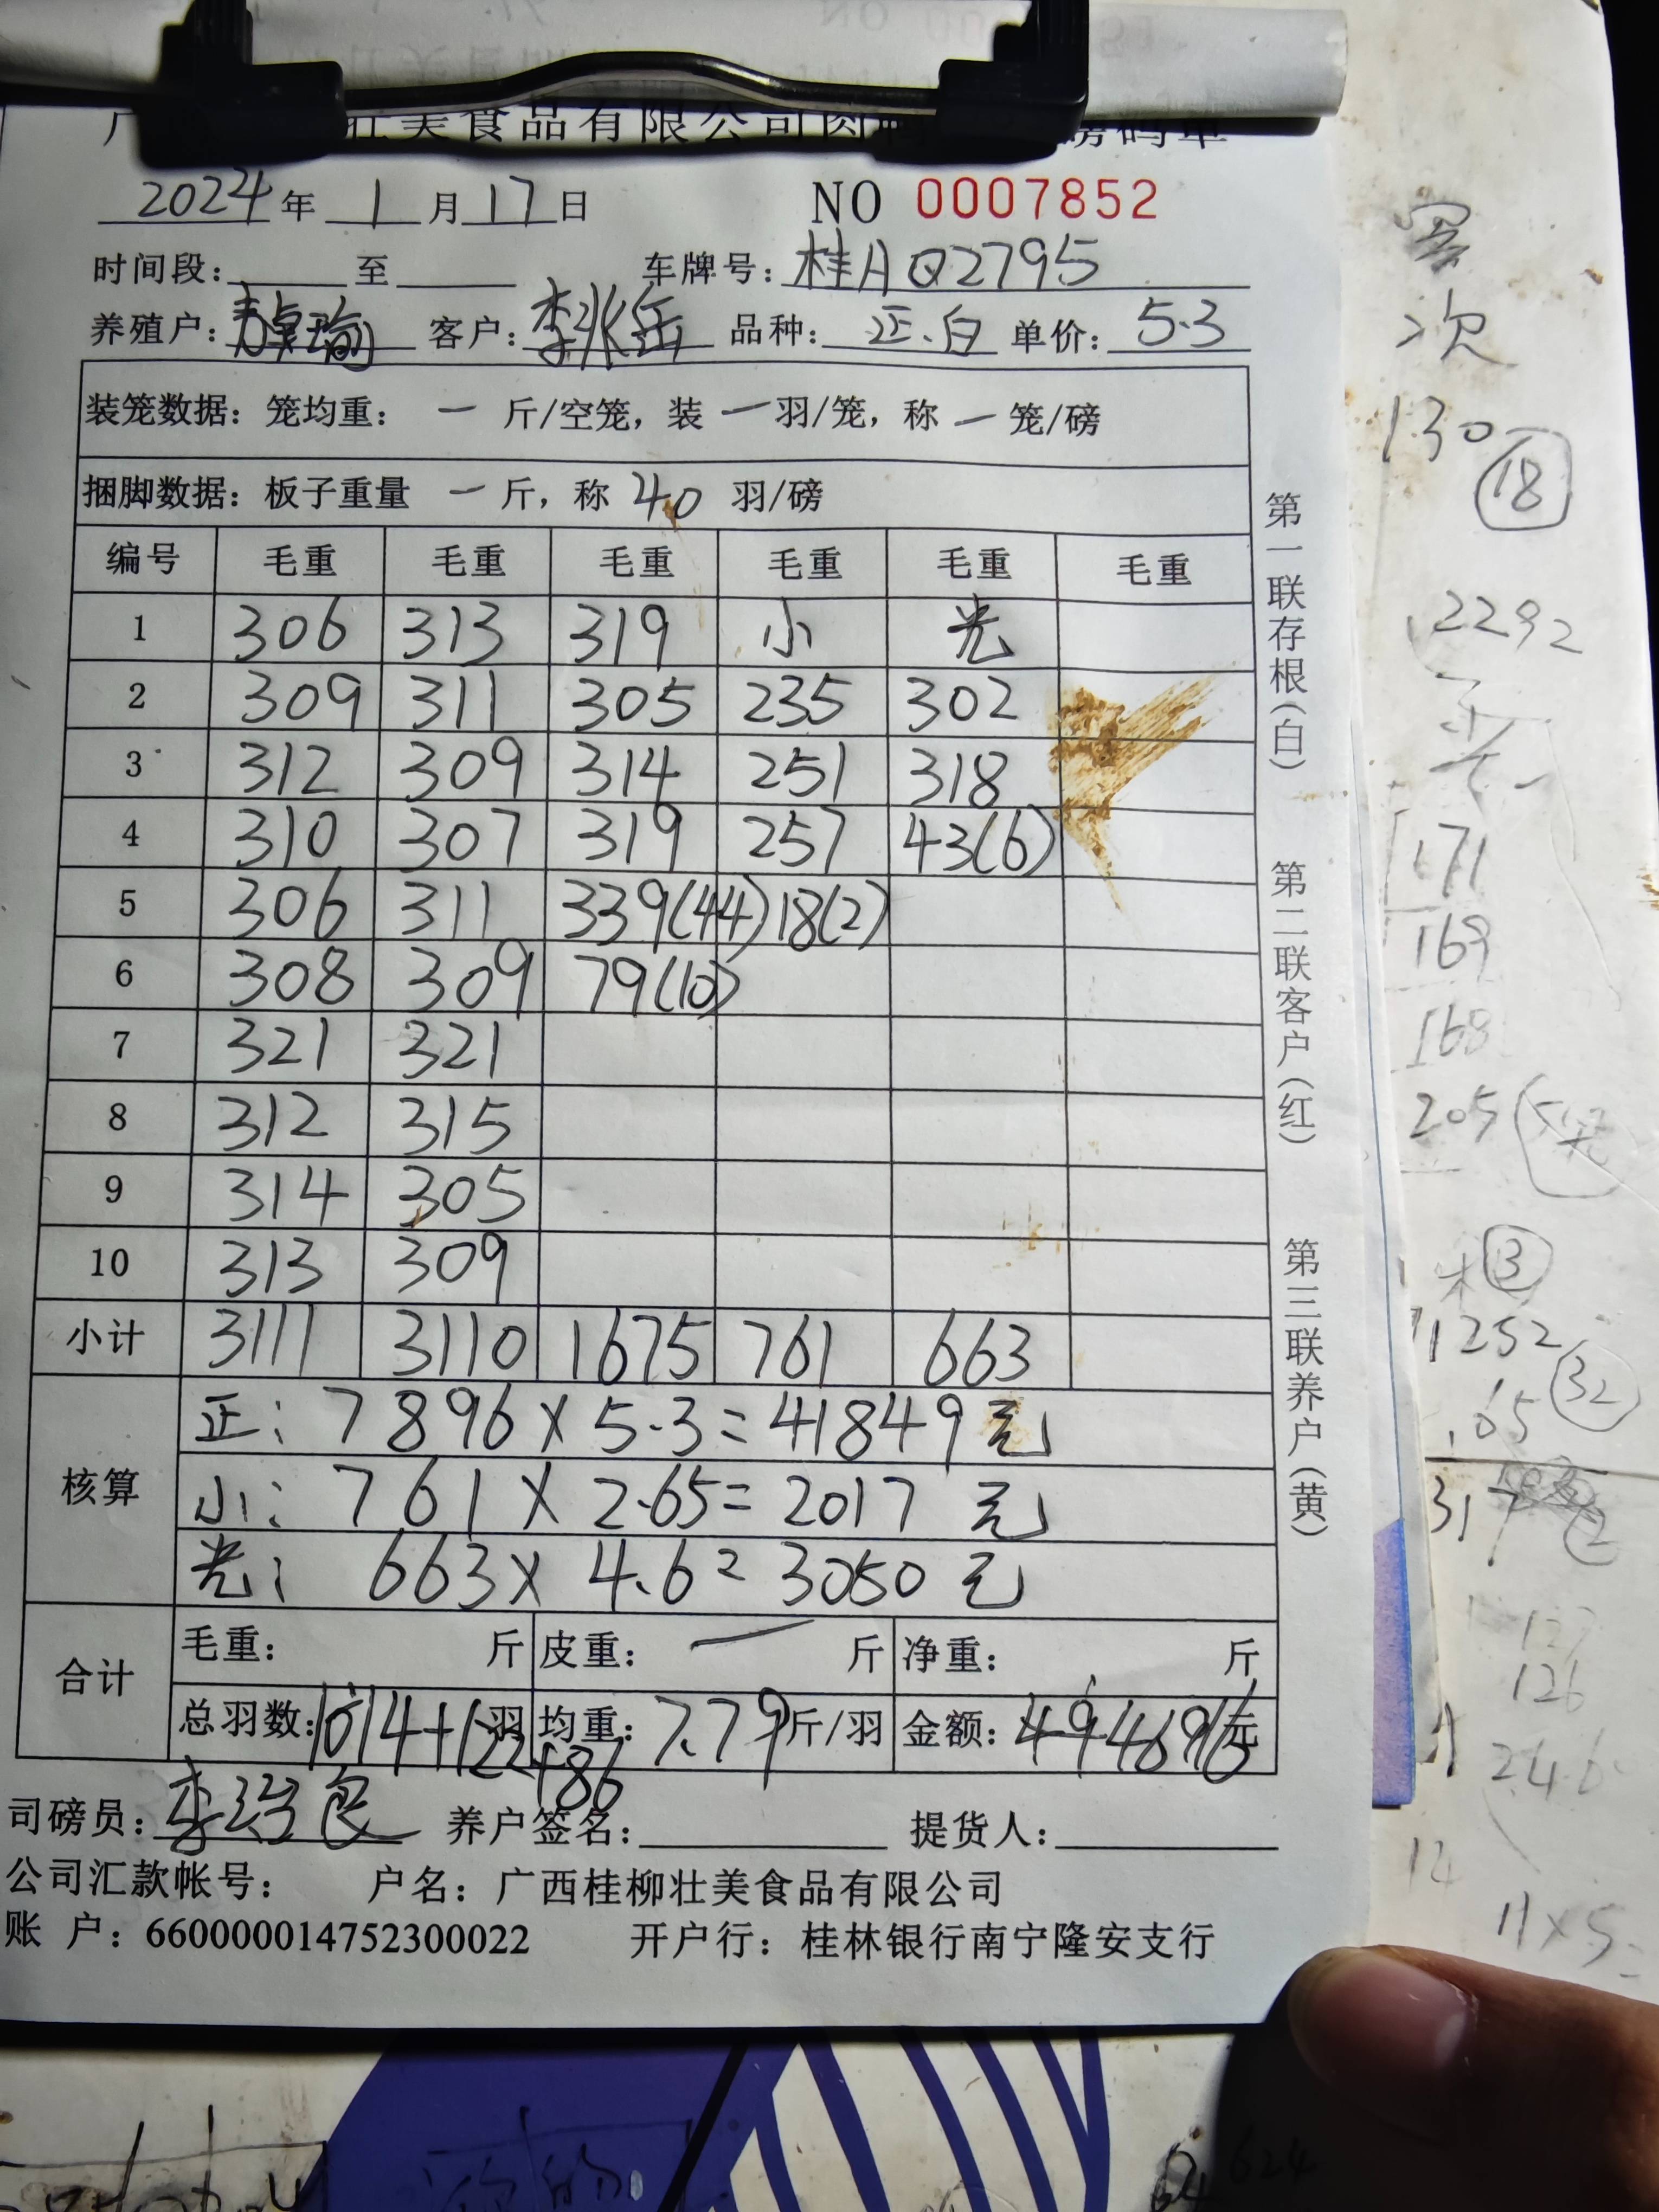 壮美食品有限公司肉 磅码单
2024年 1月17日 NO 0007852
时间段: 至 车牌号: 桂A Q2795
养殖户: 客户: 李兆岳 品种: 正.白 单价: 5.3
装笼数据: 笼均重: 一 斤/空笼, 装 一 羽/笼, 称 一 笼/磅
捆脚数据: 板子重量 一 斤, 称 40 羽/磅
编号 毛重 毛重 毛重 毛重 毛重 毛重
1 306 313 319 小 光
2 309 311 305 235 302
3 312 309 314 251 318
4 310 307 319 257 43(6)
5 306 311 339(44) 18(2)
6 308 309 79(10)
7 321 321
8 312 315
9 314 305
10 313 309
小计 3111 3110 1675 761 663
核算
正: 7896 × 5.3 = 41849 元
小: 761 × 2.65 = 2017 元
光: 663 × 4.6 = 3050 元
合计
毛重: 斤 皮重: 一 斤 净重: 斤
总羽数: 1014+122+86 羽 均重: 7.79 斤/羽 金额: 46916 元
司磅员: 李治良 养户签名: 提货人:
公司汇款帐号: 户名: 广西桂柳壮美食品有限公司
账 户: 660000014752300022 开户行: 桂林银行南宁隆安支行
第一联存根(白)
第二联客户(红)
第三联养户(黄)
次
130
18
2292
171
169
168
205
3
1252
32
65
317
126
246
14
11×5=